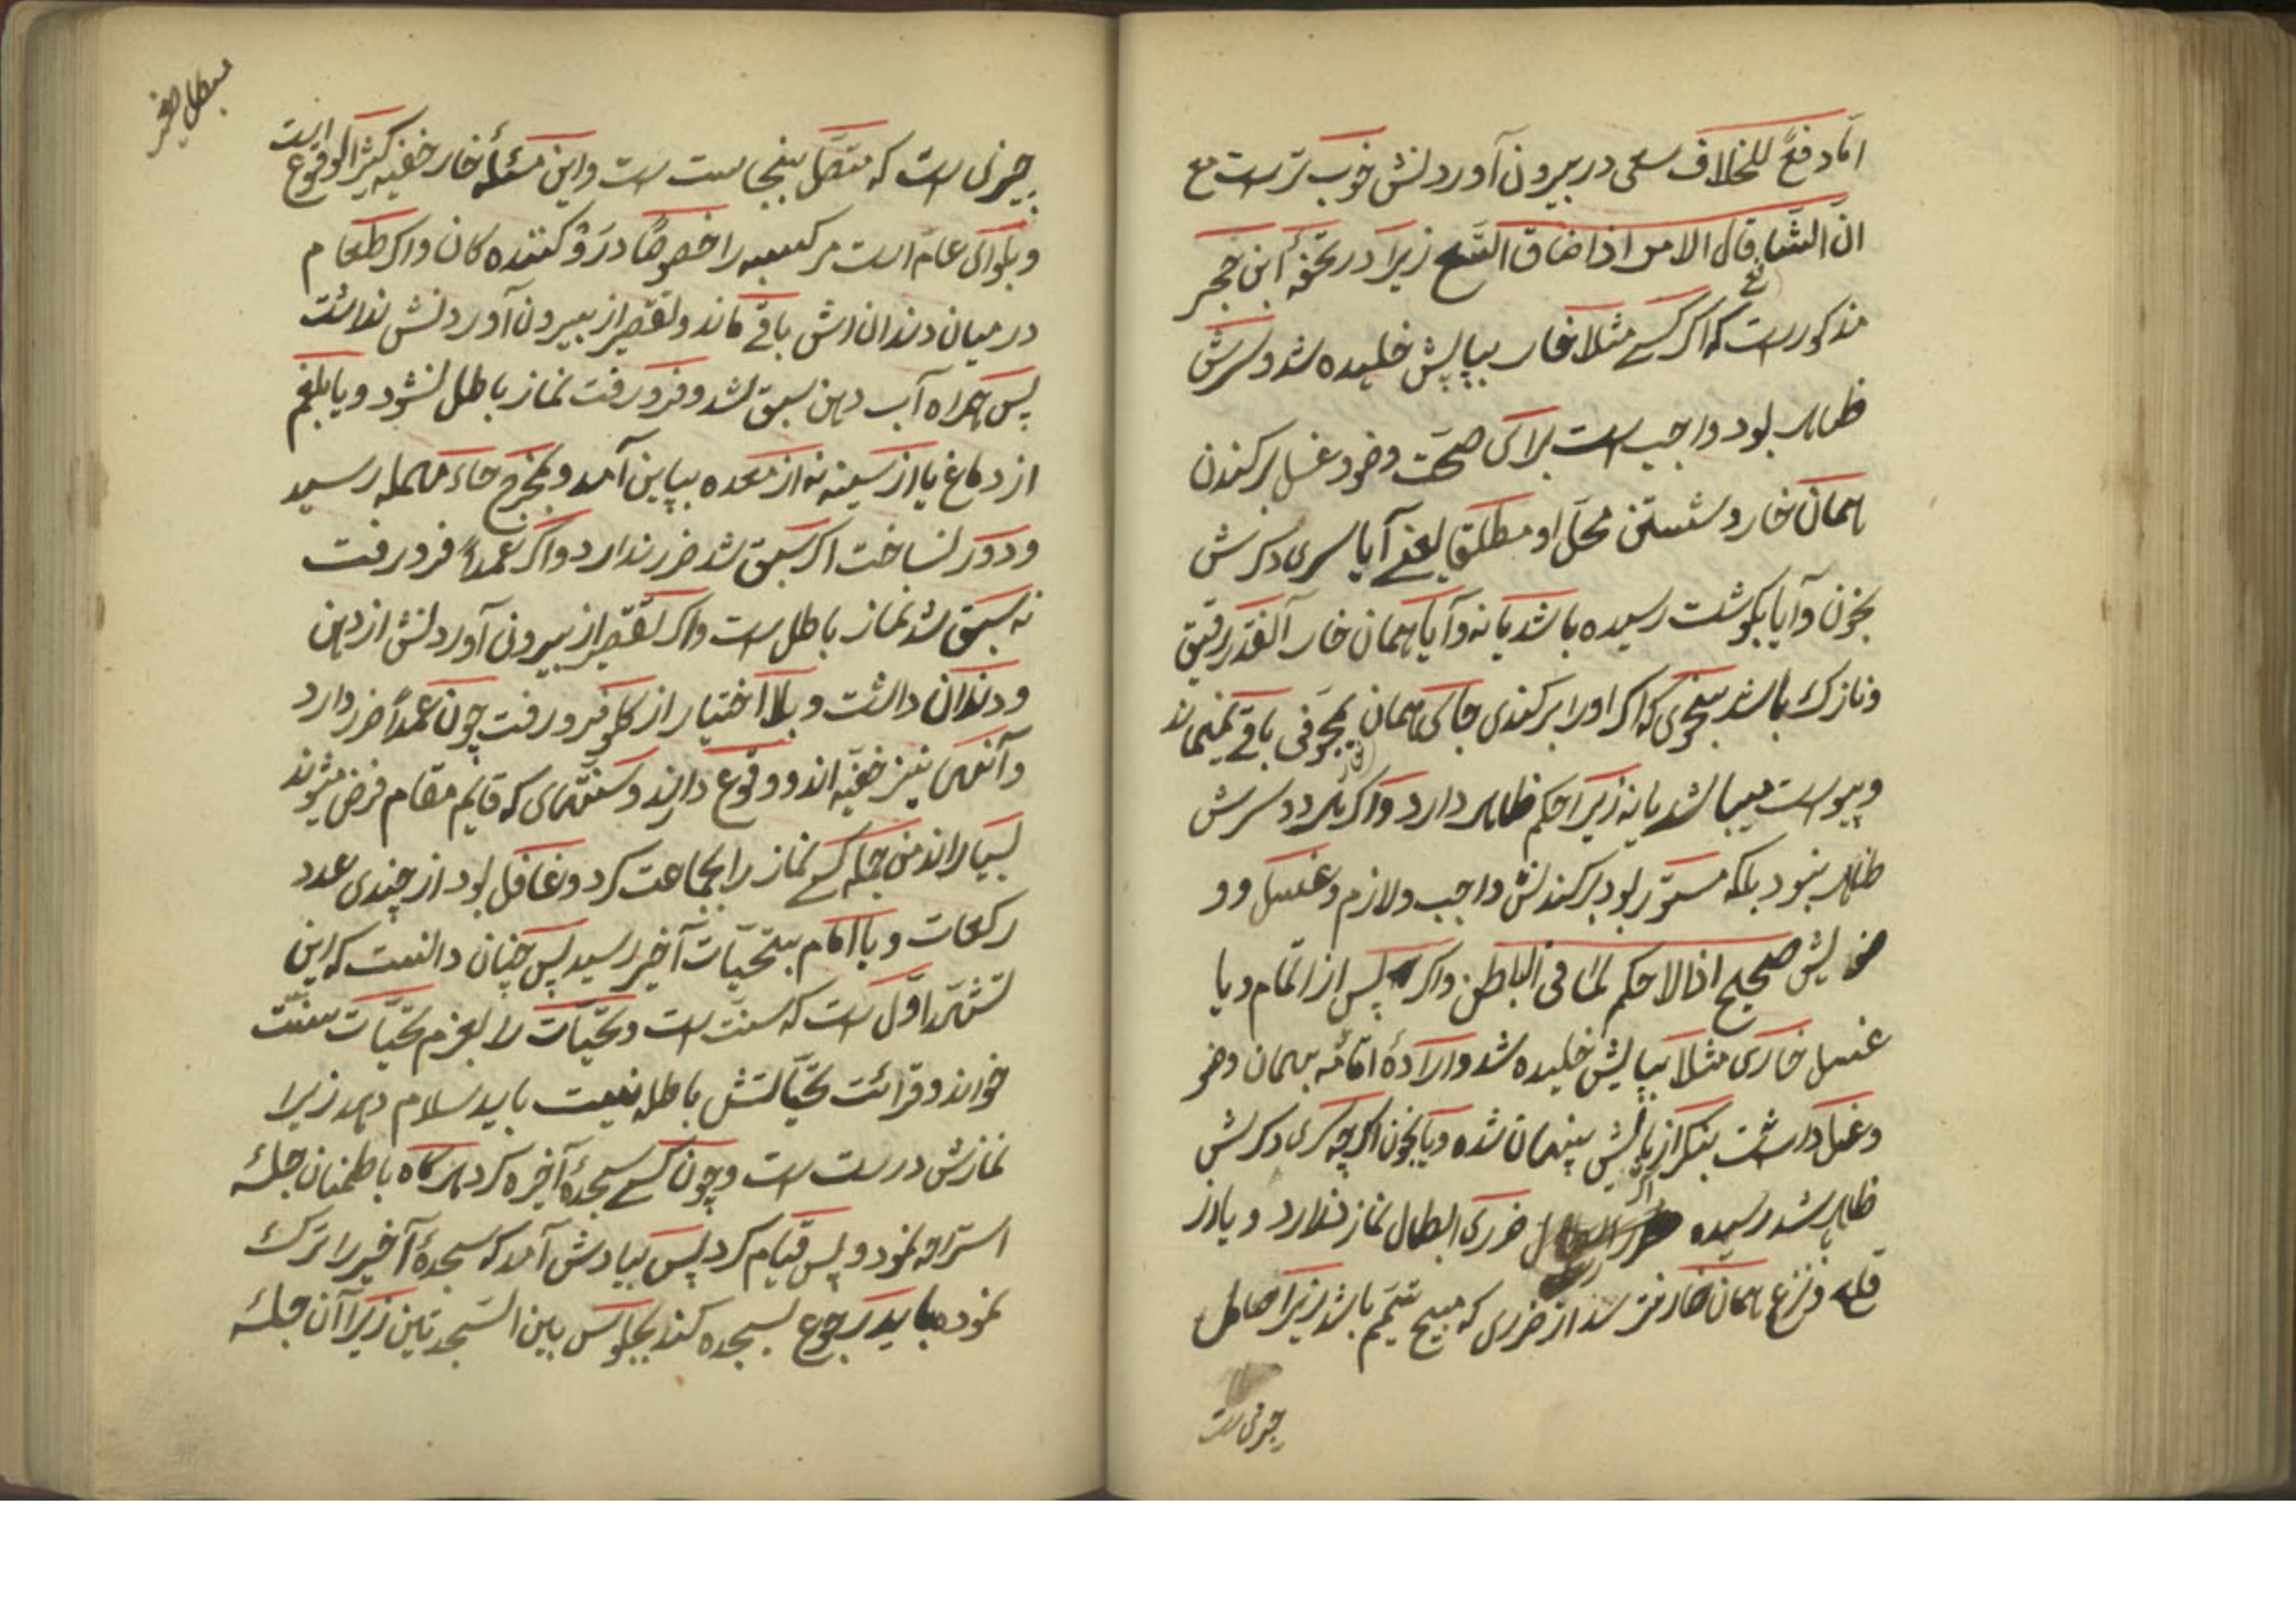 امّا دفعً للخلاف سعی در بیرون آوردنش خوب ترست مع
انّ الشافعی قال الامر اذا ضاق اتّسع زیرا در تحفهٔ ابن حجر
مذکورست که اگر کسی مثلا خار بپایش خلیده شد و سرش
ظاهر بود واجب است برای صحّت وضو و غسل برکندن
همان خار و شستن محلّ او مطلقا یعنی آیا سری دگرش
بخون و آیا بگوشت رسیده باشد یا نه و آیا همان خار آنقدر رقیق
و نازک باشد بنحوی که اگر او را برکندی جای همان مجوّفی باقی نمیماند
و پیوست میباشد یا نه زیرا حکم ظاهر دارد و اگر هر دو سرش
ظاهر نبود بلکه مستور بود برکندنش واجب و لازم و غسل و و
ضویش صحیح اذ لا حکم لما فی الباطن و اگر پس از اتمام و یا
غسل خاری مثلا بپایش خلیده شد و ارادهٔ اقامه بهمان وضو
و غسل داشت بنگر از پایش پنهان شده و یا بخون اگرچه سری دگرش
ظاهر شد رسیده ضرری ابطال نماز ندارد و یا از
قلع و نزع همان خار مترسد از ضرری که مبیح تیمّم باشد زیرا حامل
چیزی ست
چیزی ست که متصّل بنجاست ست و این مسئلهٔ خار خفیه کثیر الوقوع است
و بلوای عام است مر کسبه را خصوصًا درو کننده گان و اگر طعام
در میان دندان اش باقی ماند و تقصیر از بیرون آوردنش نداشت
پس همراه آب دهن سبق شد و فرو رفت نماز باطل نشود و یا بلغم
از دماغ یا از سینه نه از معده بپایین آمد و بمخرج حاء مهمله رسید
و دور نساخت اگر سبق شد ضرر ندارد و اگر عمداً فرو رفت
نه سبق شد نماز باطل ست و اگر تقصیر از بیرون آوردنش از دهن
و دندان داشت و بلا اختیار از گلو فرو رفت چون عمداً ضرر دارد
و آنهای نیز خفیه اند و وقوع دارند و سنتهای که قایم مقام فرض میشوند
بسیاراند من جمله کسی نماز را بجماعت کرد و غافل بود از چندی عدد
رکعات و با امام بتحیّات آخیر رسید پس چنان دانست که این
تشهّد اوّل ست که سنت ست و تحیّات را بعزم تحیّات سنّت
خواند و قرائت تحیّاتش باطله نیست باید سلام دهد زیرا
نمازش درست ست و چون کسی سجدهٔ آخیره کرد هرگاه باطمنان جلسهٔ
استراحه نمود و پس قیام کرد پس بیادش آمد که سجدهٔ آخیر را ترک
نموده باید رجوع بسجده کند بجلوس بین السّجدتین زیرا آن جلسهٔ